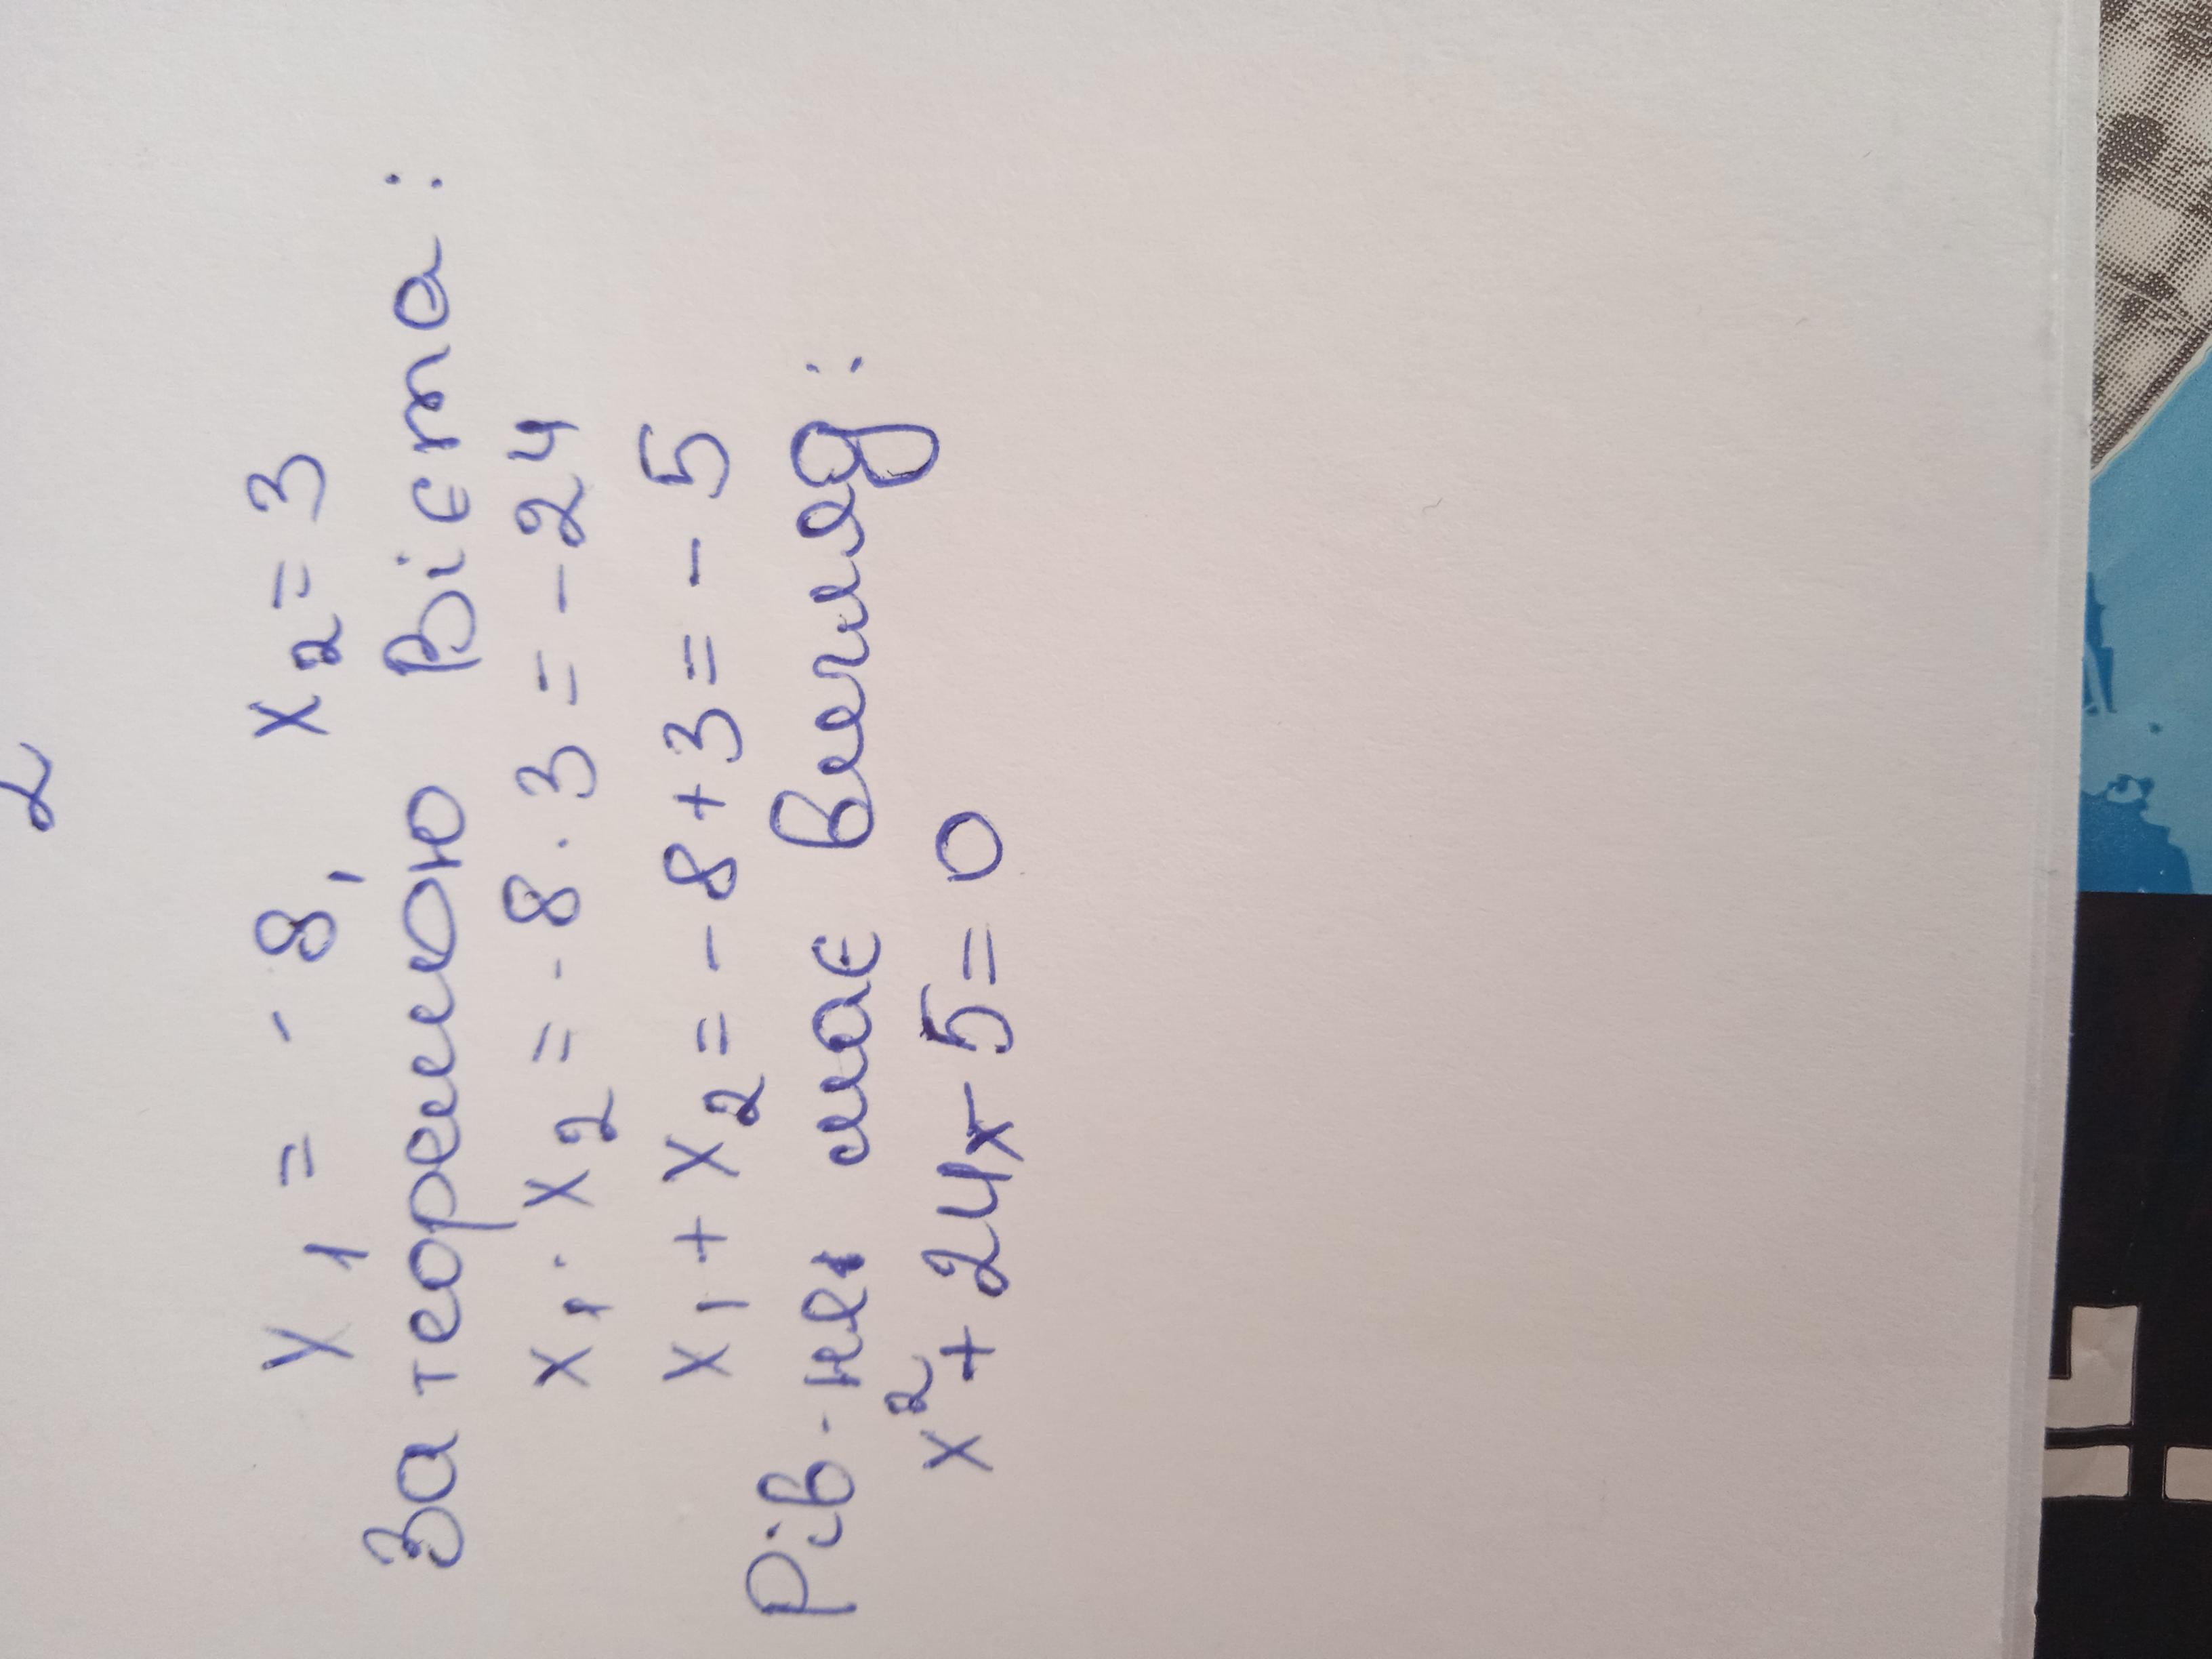 2
x₁ = -8, x₂ = 3
За теоремою Вієта:
x₁ · x₂ = -8 · 3 = -24
x₁ + x₂ = -8 + 3 = -5
Рів-ня має вигляд:
x² + 24x - 5 = 0